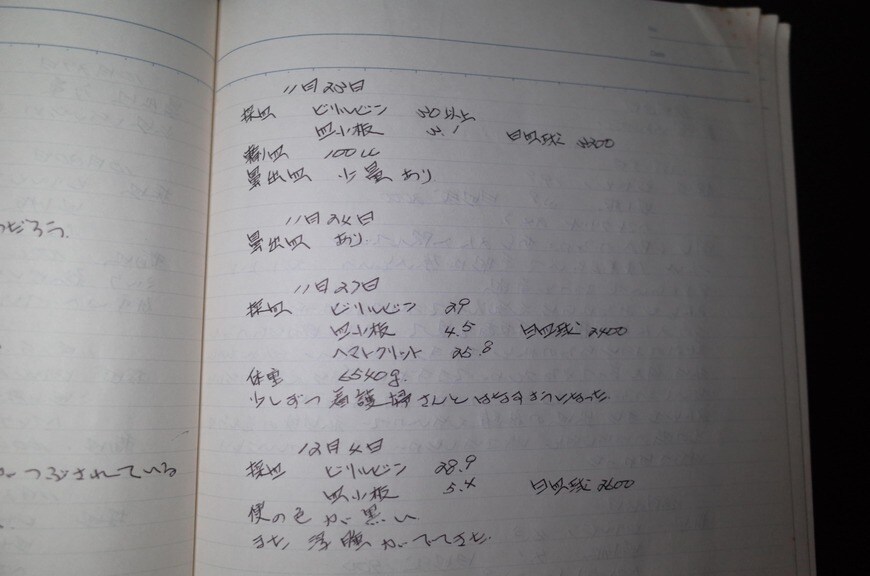 つだろう。
がつぶされている
11月23日
採血 ビリルビン 30以上
血小板 3.1 白血球 3300
輸血 100cc
鼻出血 少量あり
11月24日
鼻出血 あり
11月27日
採血 ビリルビン 29
血小板 4.5 白血球 2400
ヘマトクリット 25.8
体重 6540g.
少しずつ看護婦さんとはなすようになった。
12月4日
採血 ビリルビン 28.9
血小板 5.4 白血球 2600
便の色が黒い
また 浮腫がでてきた。